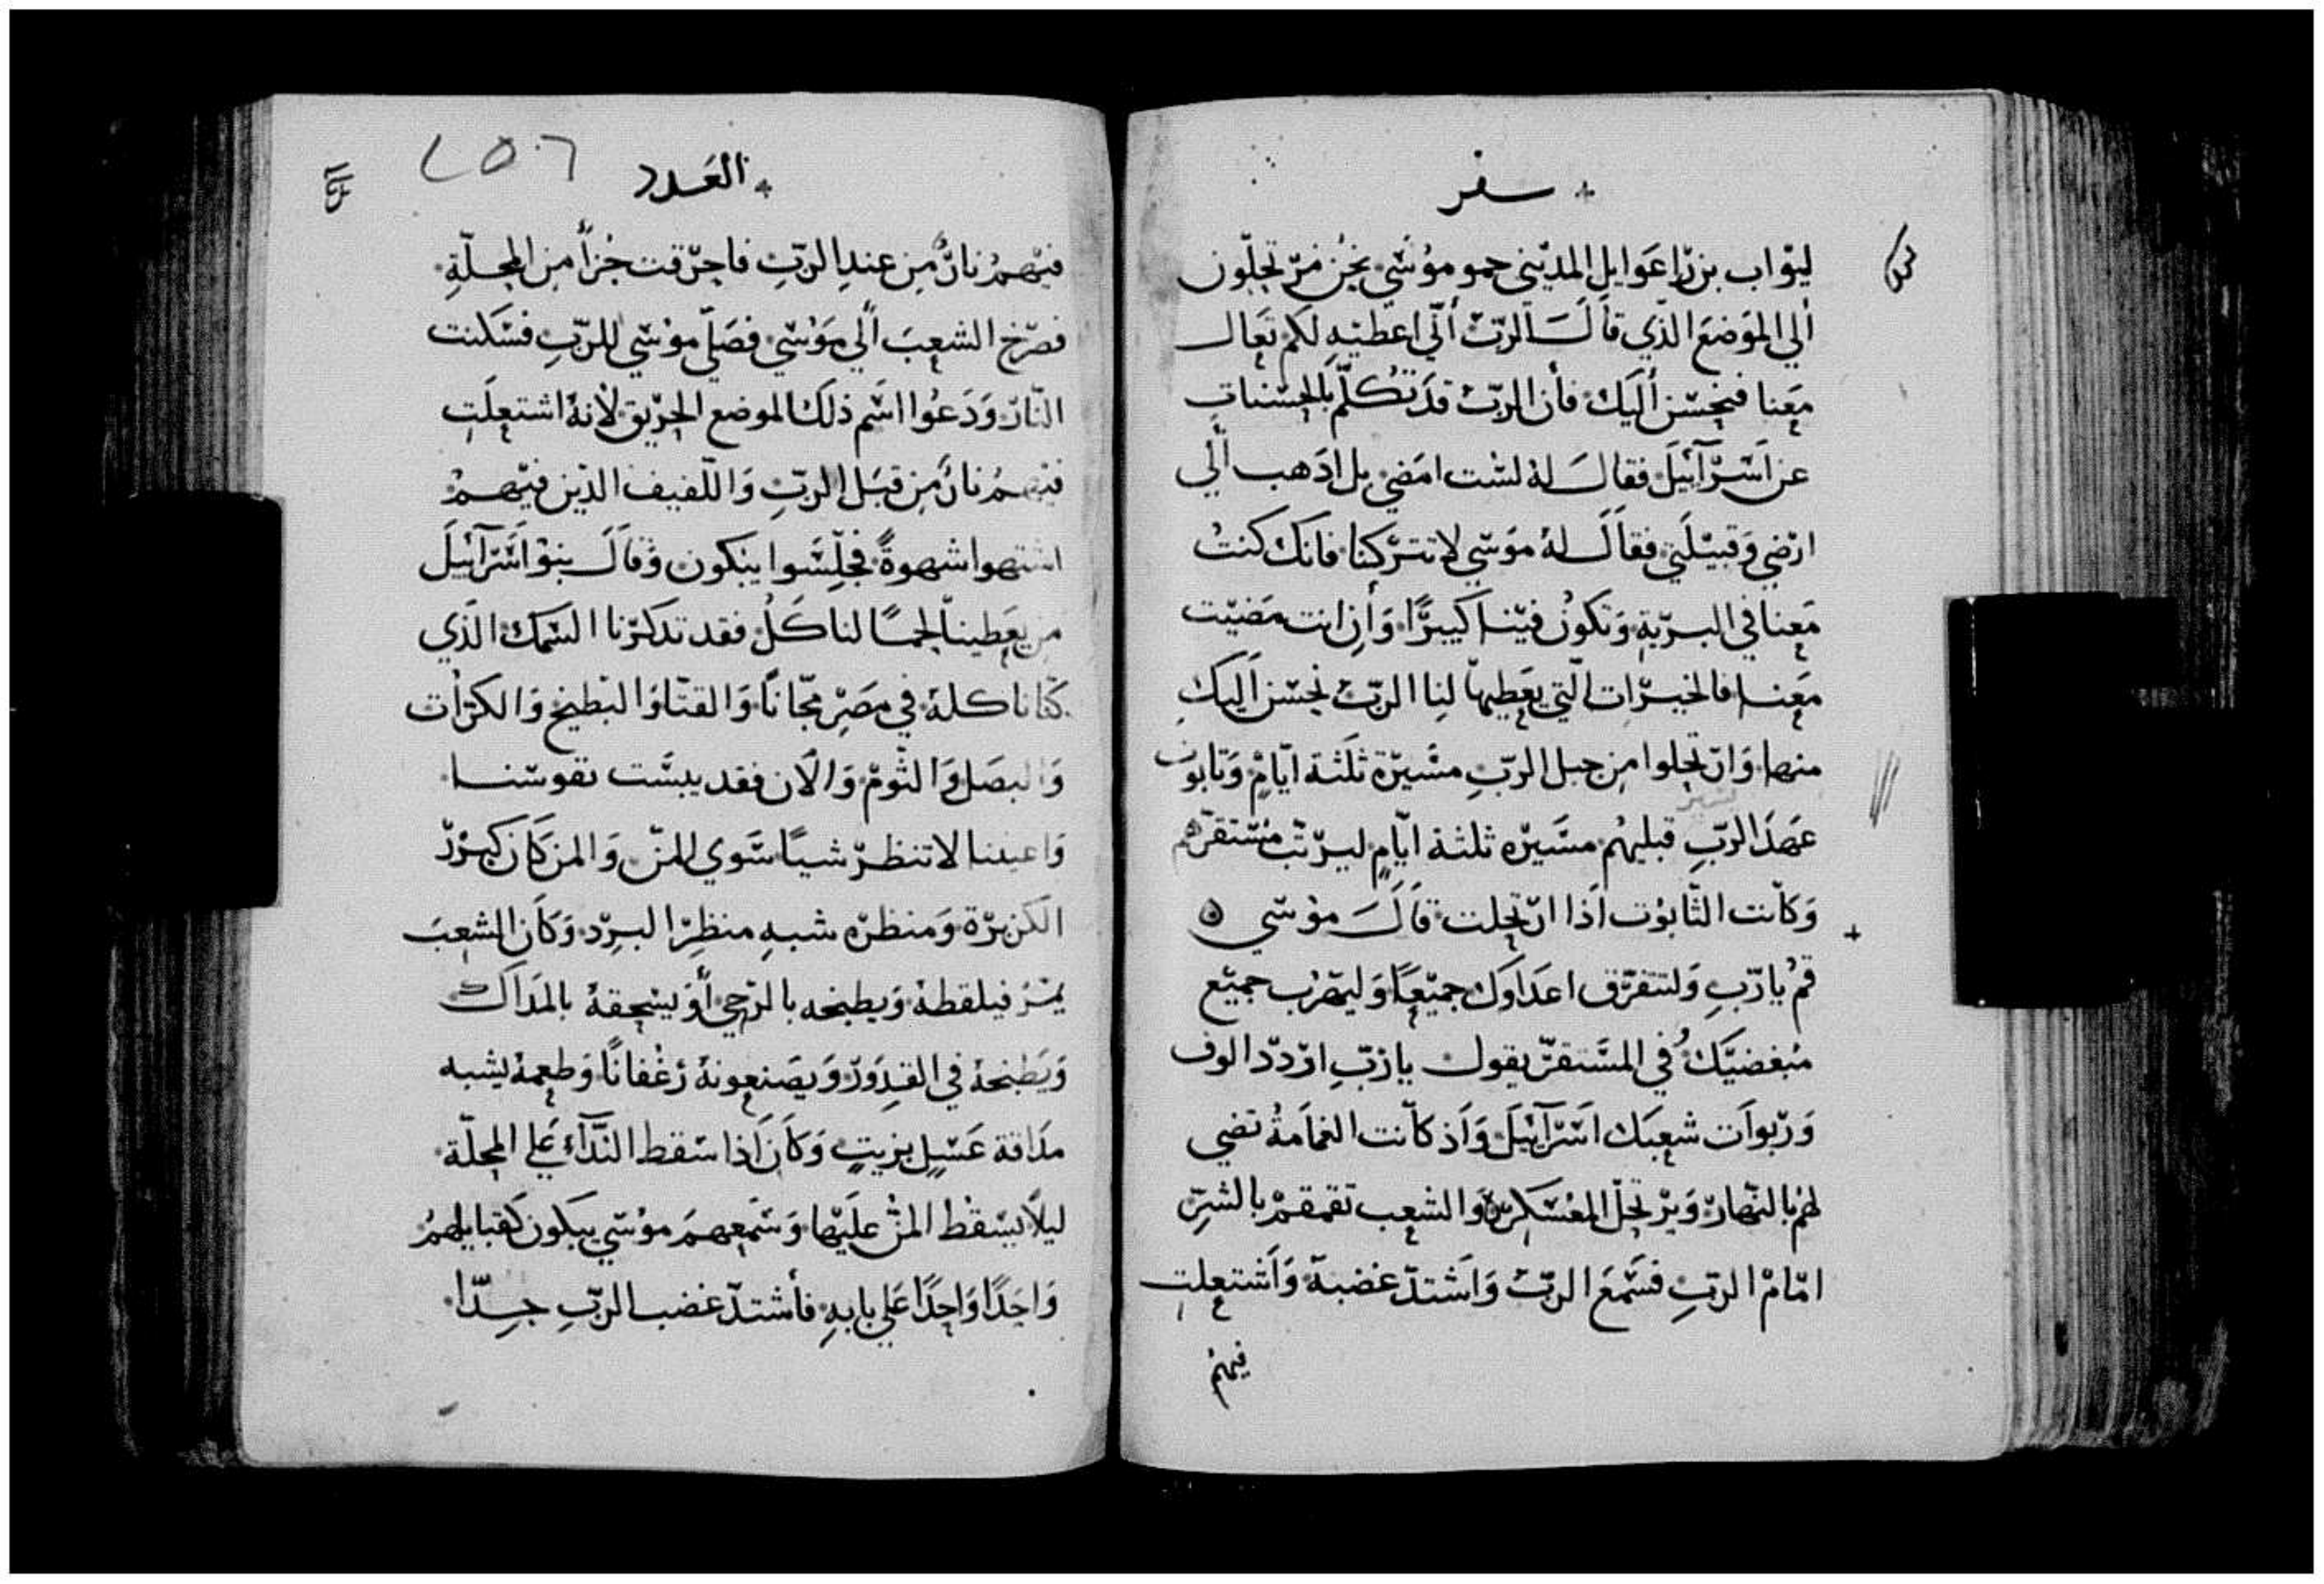 سفر
ليوٓاب بن راعوايل المديني حمو موسي نحن مرتحلون
ألي الموضع الذي قال الرب أنّي اعطيه لكم تعال
معنا فنحسن أليك فأن الرب قد تكلم بالحسنات
عن اسرآئيل فقال له لست امضي بل ادهب ألي
ارضي وقبيلتي فقال له موسي لا تتركنا فانك كنت
معنا في البرية وتكون فينا كبيرًا وأن انت مضيت
معنا فالخيرات التي يعطيها لنا الرب نحسن اليك
منها وارتحلوا من جبل الرب مسيرة ثلثة ايام وتابوت
عهد الرب قبليهم مسيره ثلثة ايام ليرتب مستقرهم
وكانت التابوت اذا ارتحلت قال موسي
قم يا رب ولتتفرق اعداوك جميعًا وليهرب جميع
مبغضيك في المستقر يقول يا رب اردد الوف
وربوات شعبك اسرآئيل واذ كانت الغمامة تضي
لهم بالنهار ويرتحل المعسكر والشعب تقمقم بالشر
امام الرب فسمع الرب واشتد غضبة واشتعلت
فيهم
العدد
٢٥٦
فيهم نار من عند الرب فاحرقت جزأ من المحلة
فصرخ الشعب ألي موسي فصلي موسي للرب فسكنت
النار ودعوا اسم ذلك الموضع الحريق لانه اشتعلت
فيهم نار من قبل الرب واللفيف الذين فيهم
اشتهوا شهوة فجلسوا يبكون وقال بنو اسرآئيل
من يعطينا لحمًا لناكل فقد تدكرنا السمك الذي
كنا ناكله في مصر مجانًا والقتا والبطيخ والكرات
والبصل والثوم والان فقد يبست نفوسنا
واعيننا لا تنظر شيًا سوي المن والمن كان كبزر
الكزبرة ومنظره شبه منظر البرد وكان الشعب
يمر فيلقطه ويطبخه بالرحي أو يسحقة بالمداك
ويطبخه في القدور ويصنعونه رغفانًا وطعمه يشبه
مداقة عسل بزيت وكان اذا سقط النداء علي المحلة
ليلًا يسقط المن عليها وسمعهم موسي يبكون كقبايلهم
واحدًا واحدًا علي بابه فأشتد غضب الرب جدًا